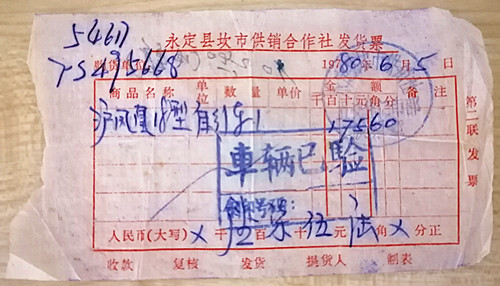 54617
永定县坎市供销合作社发货票
TS495668
购货单位
1980年6月5日
商品名称 单位 数量 单价 金额 备注
千百十元角分
沪凤凰18型自行车1 17560
第二联发票
车辆已验
人民币(大写)×千百十元角×分正
伍 陆
收款 复核 发货 提货人 制表